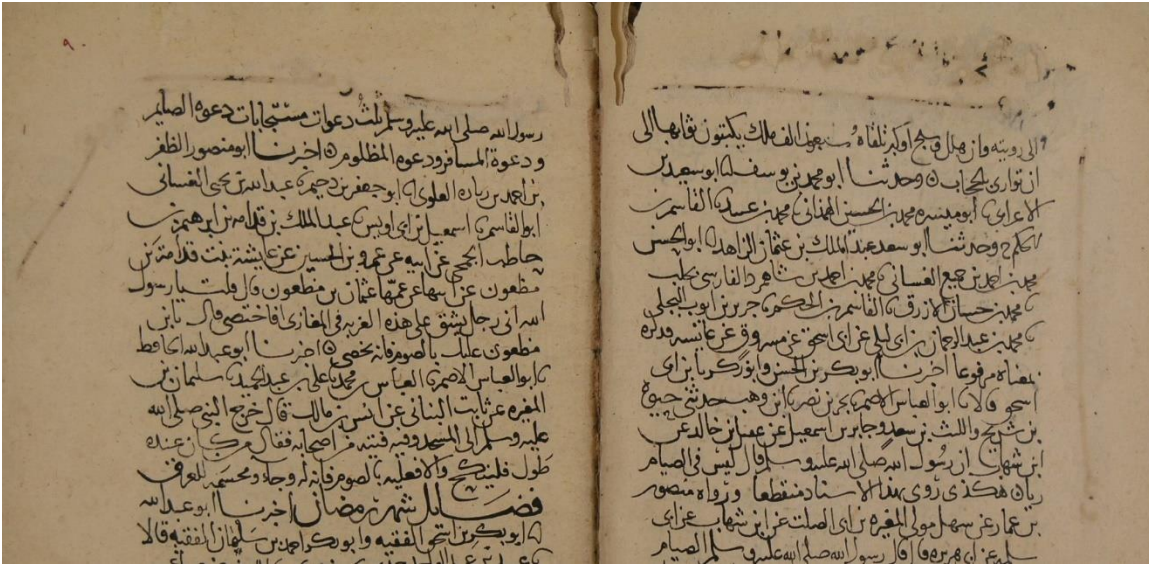 الى رويته وان هلل وسبح او كبر تلقاه سبعون الف ملك يكتبون ثوابها الى
ان توارى بالحجاب وحدثنا ابو محمد بن يوسف ابو سعيد بن
الاعرابي ابو ميسره محمد بن الحسين الهمذاني محمد بن عبيد القاسم بن
الحكم ح وحدثنا ابو سعد عبد الملك بن عثمان الزاهد ابو الحسين
محمد بن احمد بن جميع الغساني محمد بن احمد بن شاهمرد الفارسي بحلب
محمد بن حسان الازرق القاسم بن الحكم جرير بن ايوب البجلي
محمد بن عبد الرحمان بن ابي ليلى عن ابي اسحق عن مسروق عن عايشه فذكره
بمعناه مرفوعا اخبرنا ابو بكر بن الحسن وابو زكريا بن ابي
اسحق قالا ابو العباس الاصم بحر بن نصر ابن وهب حدثني حيوة
بن شريح والليث بن سعد وجابر بن اسمعيل عن عقيل بن خالد عن
ابن شهاب ان رسول الله صلى الله عليه وسلم قال ليس في الصيام
رياء هكذى روى بهذا الاسناد منقطعا ورواه منصور
بن عمار عن سهل مولى المغيره بن ابي الصلت عن ابن شهاب عن ابي
سلمه عن ابي هريره قال قال رسول الله صلى الله عليه وسلم الصيام
٩
رسول الله صلى الله عليه وسلم ثلث دعوات مستجابات دعوة الصايم
ودعوة المسافر ودعوه المظلوم اخبرنا ابو منصور الظفر
بن احمد بن زياده العلوي ابو جعفر بن دحيم عبد الله بن يحيى الغساني
ابو القاسم اسمعيل بن ابي اويس عبد الملك بن قدامه بن ابرهيم بن
حاطب الجمحي عن ابيه عن عمر بن الحسين عن عايشة بنت قدامة بن
مظعون عن ابيها عن عمها عثمان بن مظعون قال قلت يا رسول
الله اني رجل يشق على هذه الغربه في المغازي افاختصي قال يا بن
مظعون عليك بالصوم فانه يخصي اخبرنا ابو عبد الله الحافظ
ابو العباس الاصم العباس بن محمد علي بن عبد الحميد سليمان بن
المغيره عن ثابت البناني عن انس بن مالك قال خرج النبي صلى الله
عليه وسلم الى المسجد وفيه فتية من اصحابه فقال من كان عنده
طول فلينكح والا فعليه بالصوم فانه له وجاء ومحسمه للعرق
فضايل شهر رمضان اخبرنا ابو عبد الله
ابو بكر بن اسحق الفقيه وابو بكر احمد بن سليمان الفقيه قالا